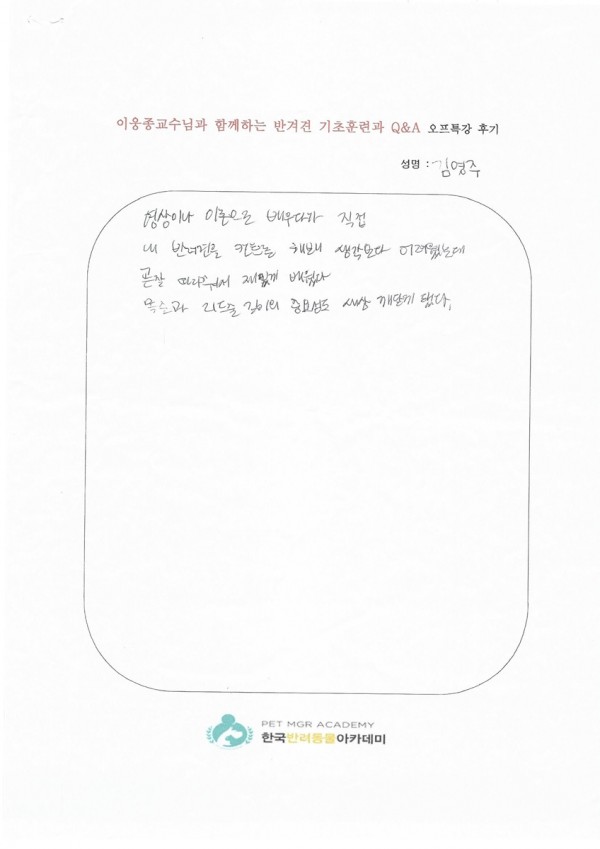 이웅종교수님과 함께하는 반겨견 기초훈련과 Q&A 오프특강 후기
성명 : 김영주
영상이나 이론으로 배우다가 직접
내 반려견을 컨트롤 해보니 생각보다 어려웠는데
곧잘 따라와줘서 재밌게 배웠다
목줄과 리드줄 길이의 중요성도 새삼 깨닫게 됐다.
PET MGR ACADEMY
한국반려동물아카데미